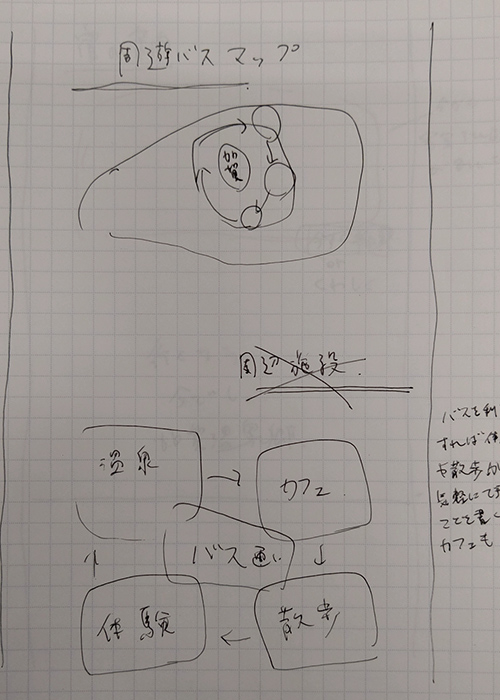 周遊バスマップ
加賀
周辺施設
温泉
カフェ
バス
体験
散歩
バスを利
すれば体
や散歩が
気軽にでき
ことを書く
カフェも